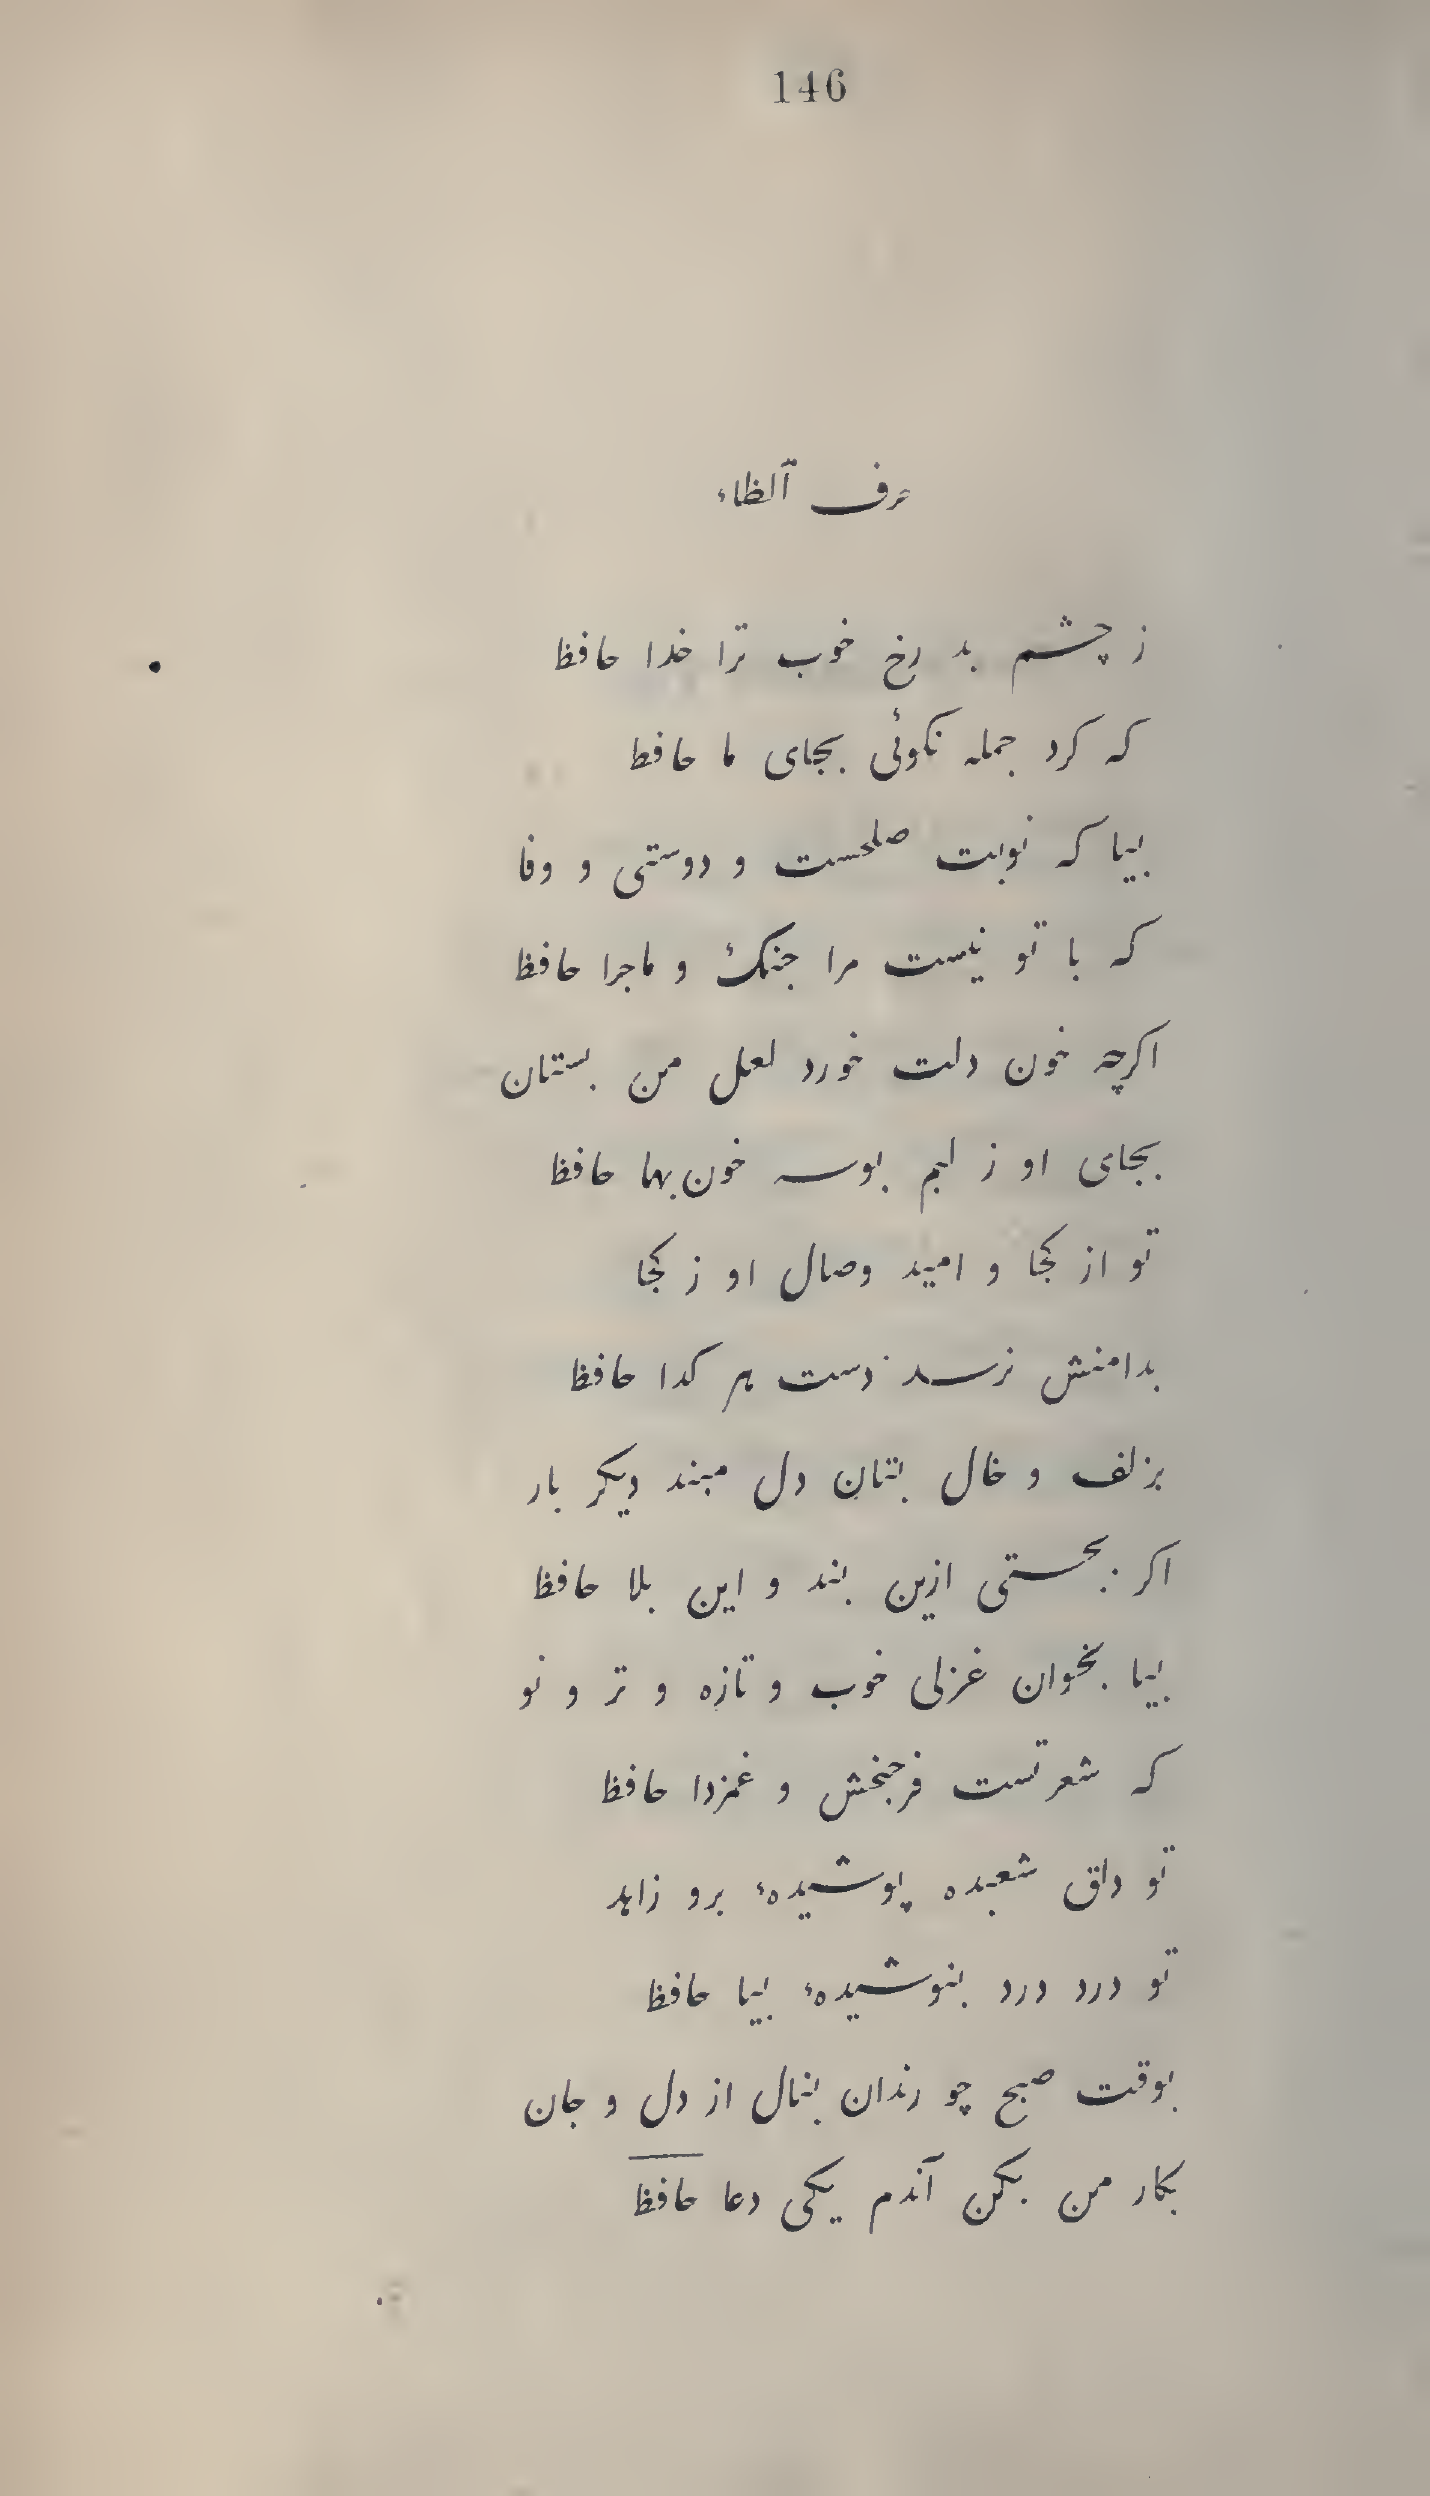 146
حرف آلظاء
ز چشم بد رخ خوب ترا خدا حافظ
که کرد جمله نکوئی بجای ما حافط
بیا که نوبت صلحست و دوستی و وفا
که با تو نیست مرا جنک و ماجرا حافظ
اکرچه خون دلت خورد لعل من بستان
بجای او ز لبم بوسه خون بها حافظ
تو از کجا و امید وصال او ز کجا
بدامنش نرسد دست هر کدا حافظ
بزلف و خال بتان دل مبند دیکر بار
اکر بجستی ازین بند و این بلا حافظ
بیا بخوان غزلی خوب و تازه و تر و نو
که شعر تست فرحبخش و غمزدا حافظ
تو دلق شعبده پوشیدهٔ برو زاهد
تو درد درد بنوشیدهٔ بیا حافظ
بوقت صبح چو رندان بنال از دل و جان
بکار من بکن آندم یکی دعا حافظ